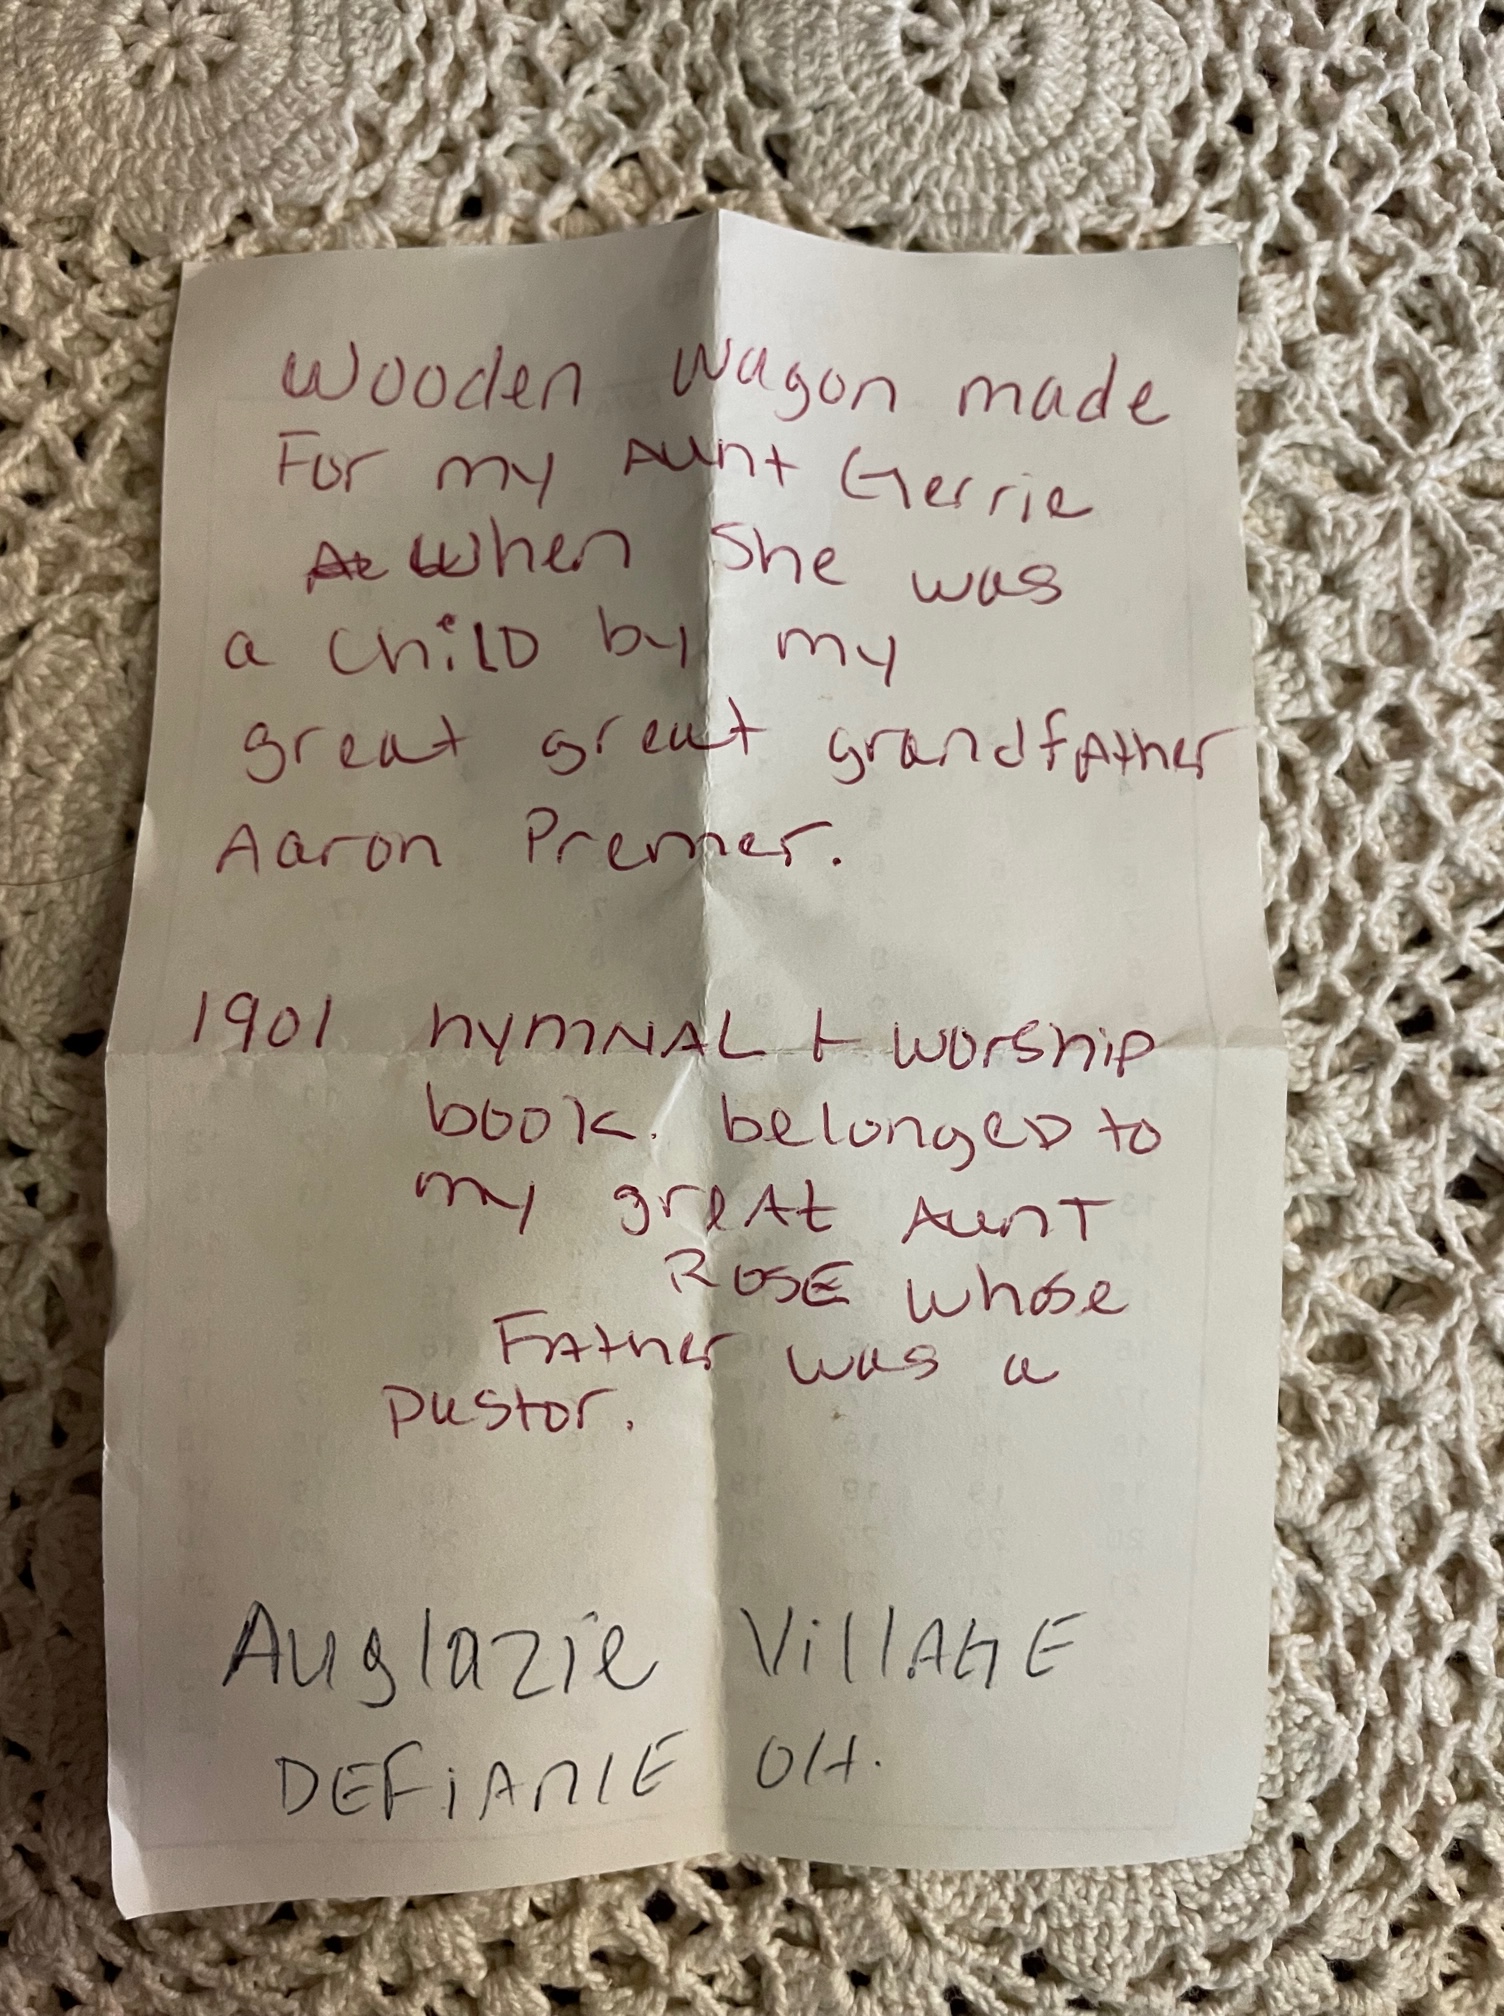 Wooden Wagon made
For my Aunt Gerrie
When She was
a Child by my
great great grandfather
Aaron Premer.
1901 hymnal + worship
book. belonged to
my great Aunt
Rose whose
Father was a
pastor.
Auglazie Village
DEFIANCE OH.